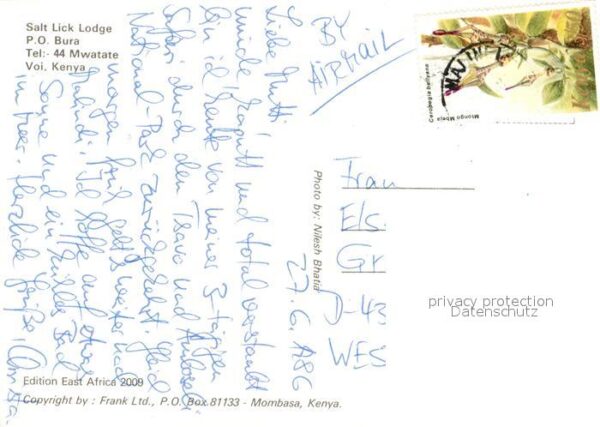 Salt Lick Lodge
P.O. Bura
Tel:- 44 Mwatate
Voi. Kenya.
BY
AIRMAIL
Ceropegia ballyana
Mtongo Mbeja
27.6.1986
Liebe Mutti,
müde, kaputt und total verstaubt
bin ich heute von meiner 3-tägigen
Safari durch den Tsavo und Amboseli-
National-Park zurückgekehrt. Gleich
morgen früh geht's weiter nach
Malindi. Ich hoffe auf etwas
Sonne und ein kühles Bad
im Meer. Herzliche Grüße, Christa.
Photo by: Nilesh Bhatia
Frau
Els.
Gr
D-43
WES
privacy protection
Datenschutz
Edition East Africa 2009
Copyright by : Frank Ltd., P.O. Box 81133 - Mombasa, Kenya.